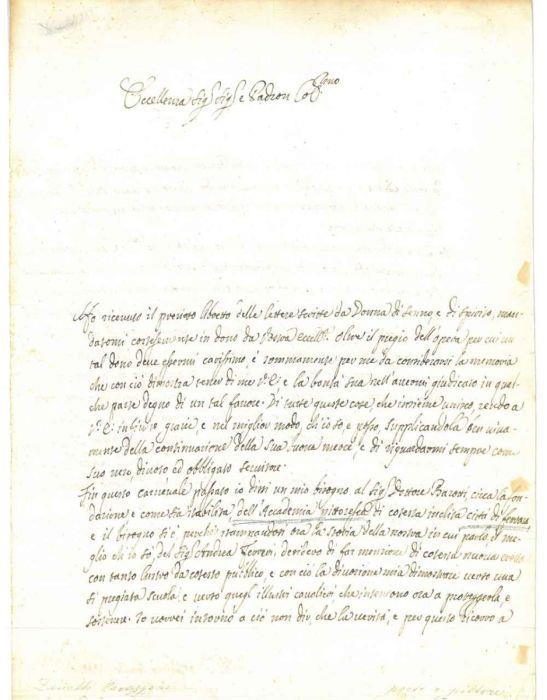 Eccellenza Sig.r Sig.r e Padron Col.mo
Ho ricevuto il pregiato libretto delle lettere scritte da Donna di senno, e di spirito, man-
datomi cortesemente in dono da Vostra Eccell.a. Oltre il pregio dell'opera per cui un
tal dono deve essermi carissimo, è sommamente per me da considerarsi la memoria
che con ciò dimostra tener di me V.E. e la bontà sua nell'avermi giudicato in qual-
che parte degno di un tal favore. Di tutte queste cose, che insieme unisco, rendo a
V.E. infinite grazie, e nel miglior modo, ch'io so, e posso, supplicandola
della continuazione della sua buona mercé, e di riguardarmi sempre come
suo vero, divoto ed obbligato servitore.
In questo carnevale passato io dissi un mio bisogno al Sig.r Dottore Barotti, circa la fon-
dazione e come sia stabilita dell'Accademia Pittoresca di cotesta inclita città di Ferrara
e il bisogno si è, perché ristampandosi ora la storia della nostra in cui parlo, il me-
glio ch'io so, del Sig.r Andrea Ferreri, desidero di far menzione di cotesta nuova
con tanto lustro da cotesto pubblico, e con ciò la divozione mia dimostrare verso una
sì pregiata scuola, e verso quegli illustri cavalieri che intendono ora a proteggerla, e
Io vorrei intorno a ciò non dir, che la verità, e per questo ricorro a
Zanotti
poeta e pittore